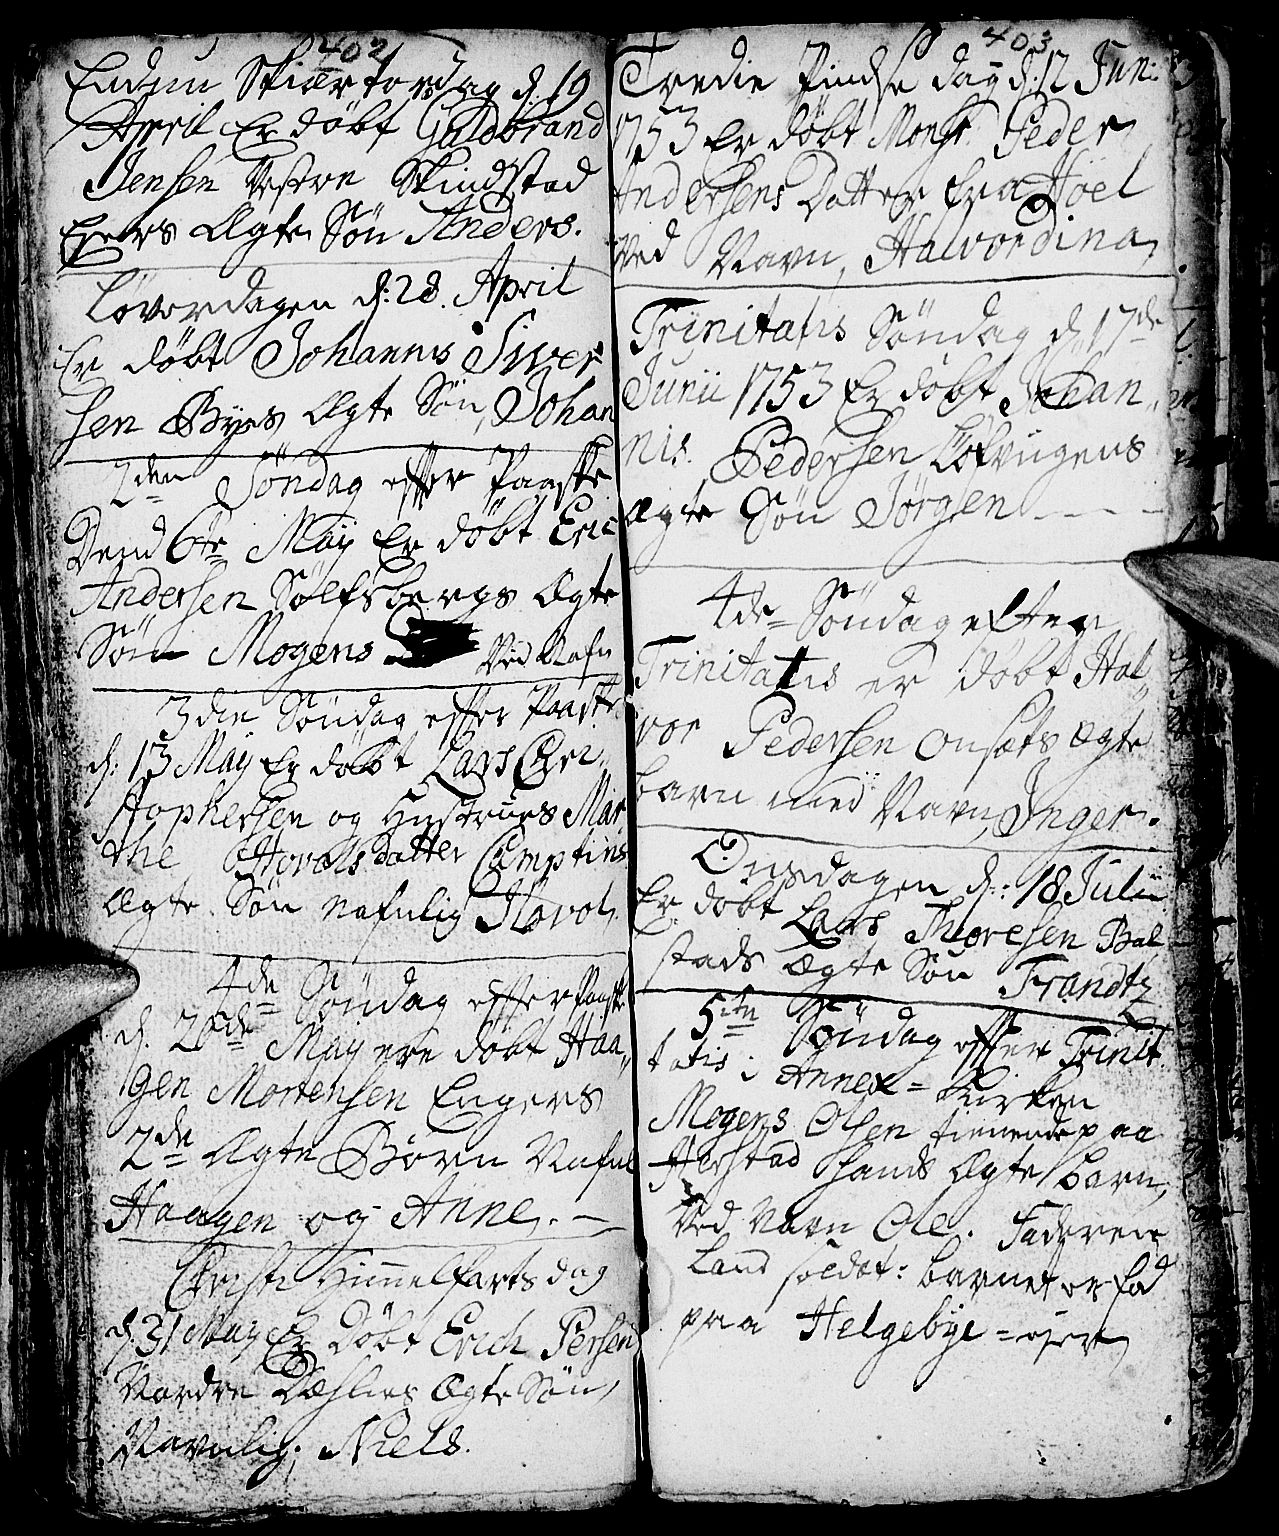 402
Endnu Skiærtorsdag d. 19
April Er døbt Guldbrand
Jensen Vestre Skindstad
Eyers Ægte Søn Anders.
Løverdagen d: 28. April
Er døbt Johannis Siver
sen Byes Ægte Søn, Johan
2den Søndag efter Paaske
Dend 6te May Er døbt Eric
Andersen Sølfsbergs Ægte
Søn Mogens Ved Nafn
3die Søndag efter Paaske
d: 13 May Er døbt Lars Chri
stophersen og Hustrues Mar
the Hovolsdatter Camptins
Ægte Søn nafnlig Hovol.
4de Søndag efter Paaske
d. 20de May ere døbt Haa,,
gen Mortensen Engers
2de Ægte Børn Nafnl
Haagen og Anne. —
Christi Himmelfarts dag
d. 31 May Er Døbt Erich Persen
Nordre Dæhlies Ægte Søn,
Navnlig: Niels.
403
Tredie Pindse dag d: 12 Jun:
1753 Er døbt Monsr. Peder
Andersens Datter fra Høel
Ved Navn, Halvordina,
Trinitatis Søndag d. 17de
Junii 1753 Er døbt Johan,,
nis. Pedersen Løfviigens
Ægte Søn Jørgen — — —
4de Søndag efter
Trinitatis er døbt Hal,,
vor Pedersen Onsets Ægte
barn med Navn, Inger.
Onsdagen d: 18 Julii
Er døbt Lars Thoresen Bal
stads Ægte Søn Trandtz
5te Søndag efter Trinit
tatis i Annex = Kirken
Mogens Olsen tienende paa
Herstad hands Ægte barn,
Ved Navn Ole. Faderen
Land soldat: barnet er fød
paa Helgebye = eyer,